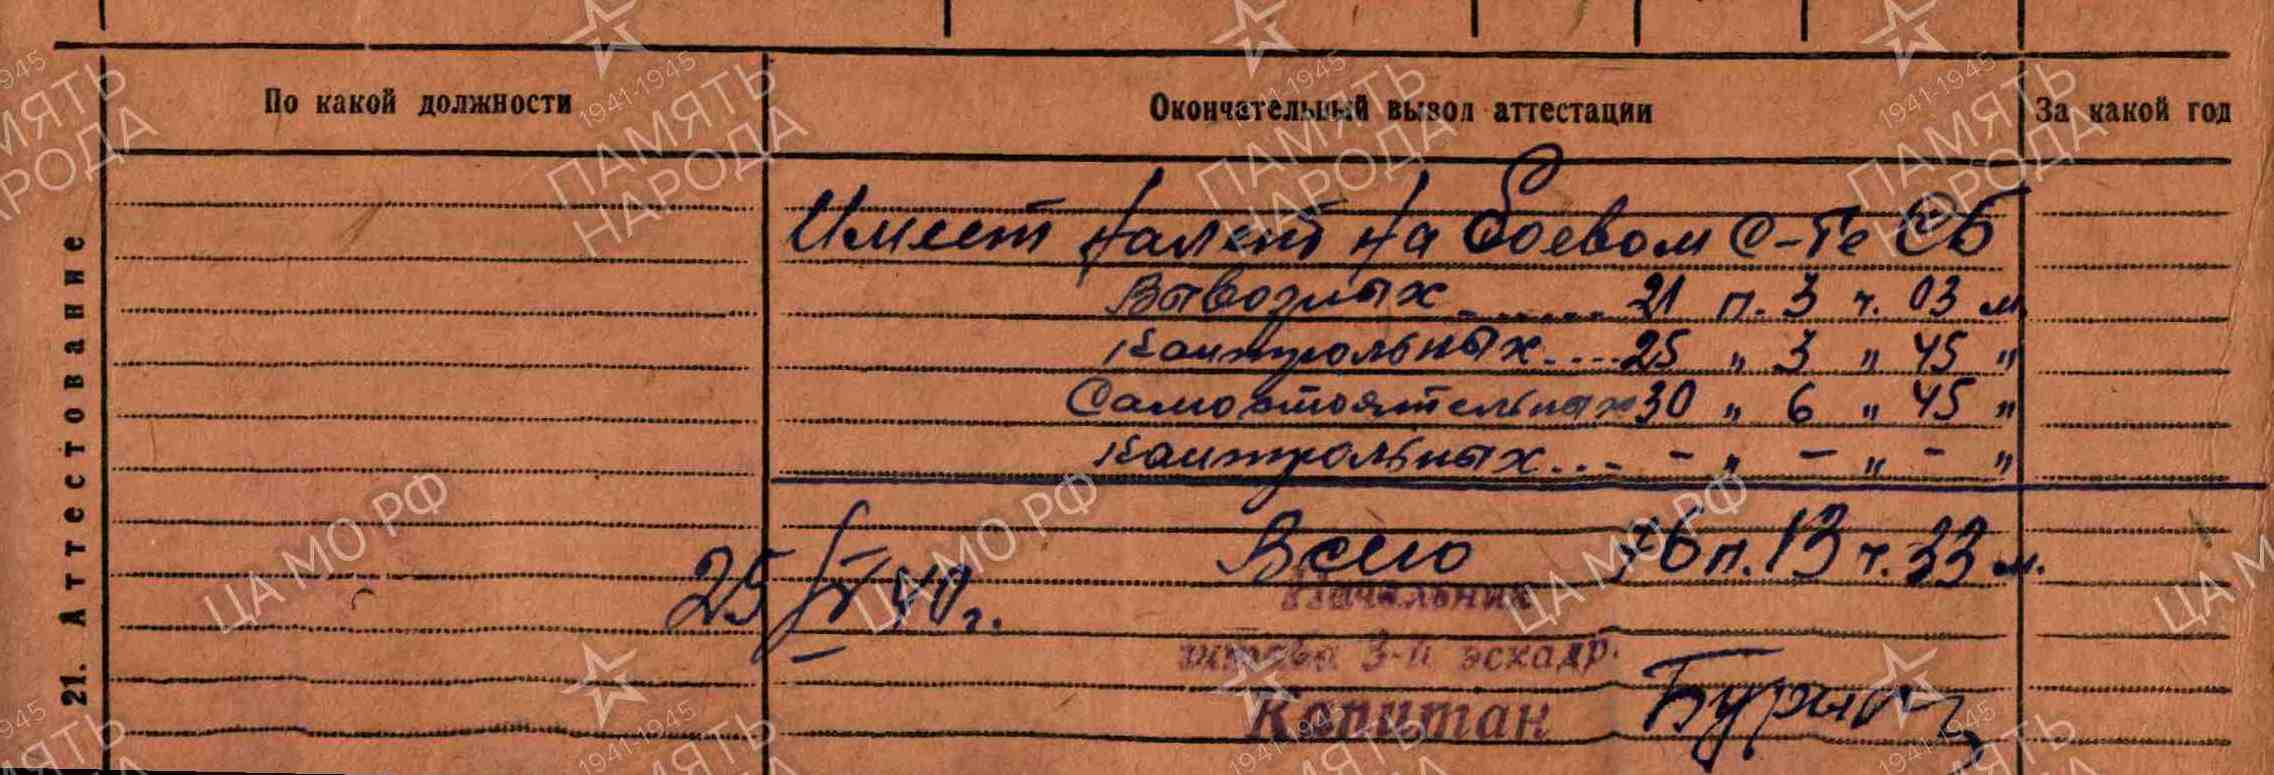 По какой должности
Окончательный вывод аттестации
За какой год
21. Аттестование
Имеет налет на боевом с-те СБ
Вывозных ........ 21 п. 3 ч. 03 м.
Контрольных .... 25 " 3 " 45 "
Самостоятельных 30 " 6 " 45 "
Контрольных ... - " - " - "
25/IV 40 г.
Всего 76 п. 13 ч. 33 м.
Начальник
штаба 3-й эскадр.
Капитан
ПАМЯТЬ
НАРОДА
1941-1945
ЦА МО РФ